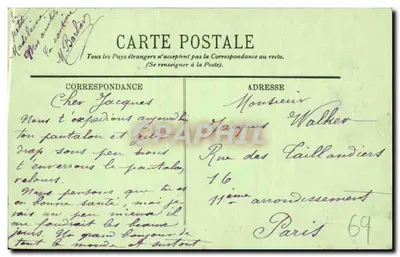 petite
Madeleine
CARTE POSTALE
Tous les Pays étrangers n'acceptent pas la Correspondance au recto.
(Se renseigner à la Poste).
CORRESPONDANCE
ADRESSE
Cher Jacques
Nous t'expédions aujourd'hui
ton pantalon et gilet
drap sous peu nous
t'enverrons le pantalon
velours.
Nous pensons que tu es
en bonne santé, moi je
vais un peu mieux il
me faudrait les beaux
jours. Un grand bonjour de
tout le monde et surtout
Monsieur
Jacques Walker
Rue des Taillandiers
16
11ème arrondissement
Paris
69
CPAPHIL.com